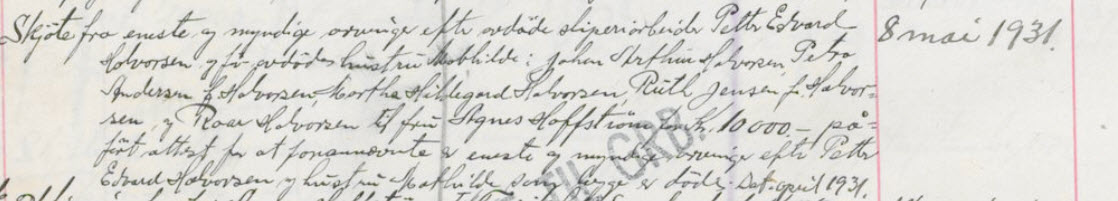 Skjøte fra eneste og myndige arvinger efter avdöde sliperiarbeider Petter Edvard
Halvorsen og før avdödes hustru Mathilde: Johan Arthur Halvorsen, Petra
Andersen f. Halvorsen, Martha Hildegard Halvorsen, Ruth Jensen f. Halvor=
sen, og Roar Halvorsen til frü Agnes Hoffström for kr. 10 000.- på=
fört attest for at forannevnte er eneste og myndige arvinger efter Petter
Edvard Halvorsen og hustru Mathilde som begge er döde. Dat. april 1931.
8 mai 1931.